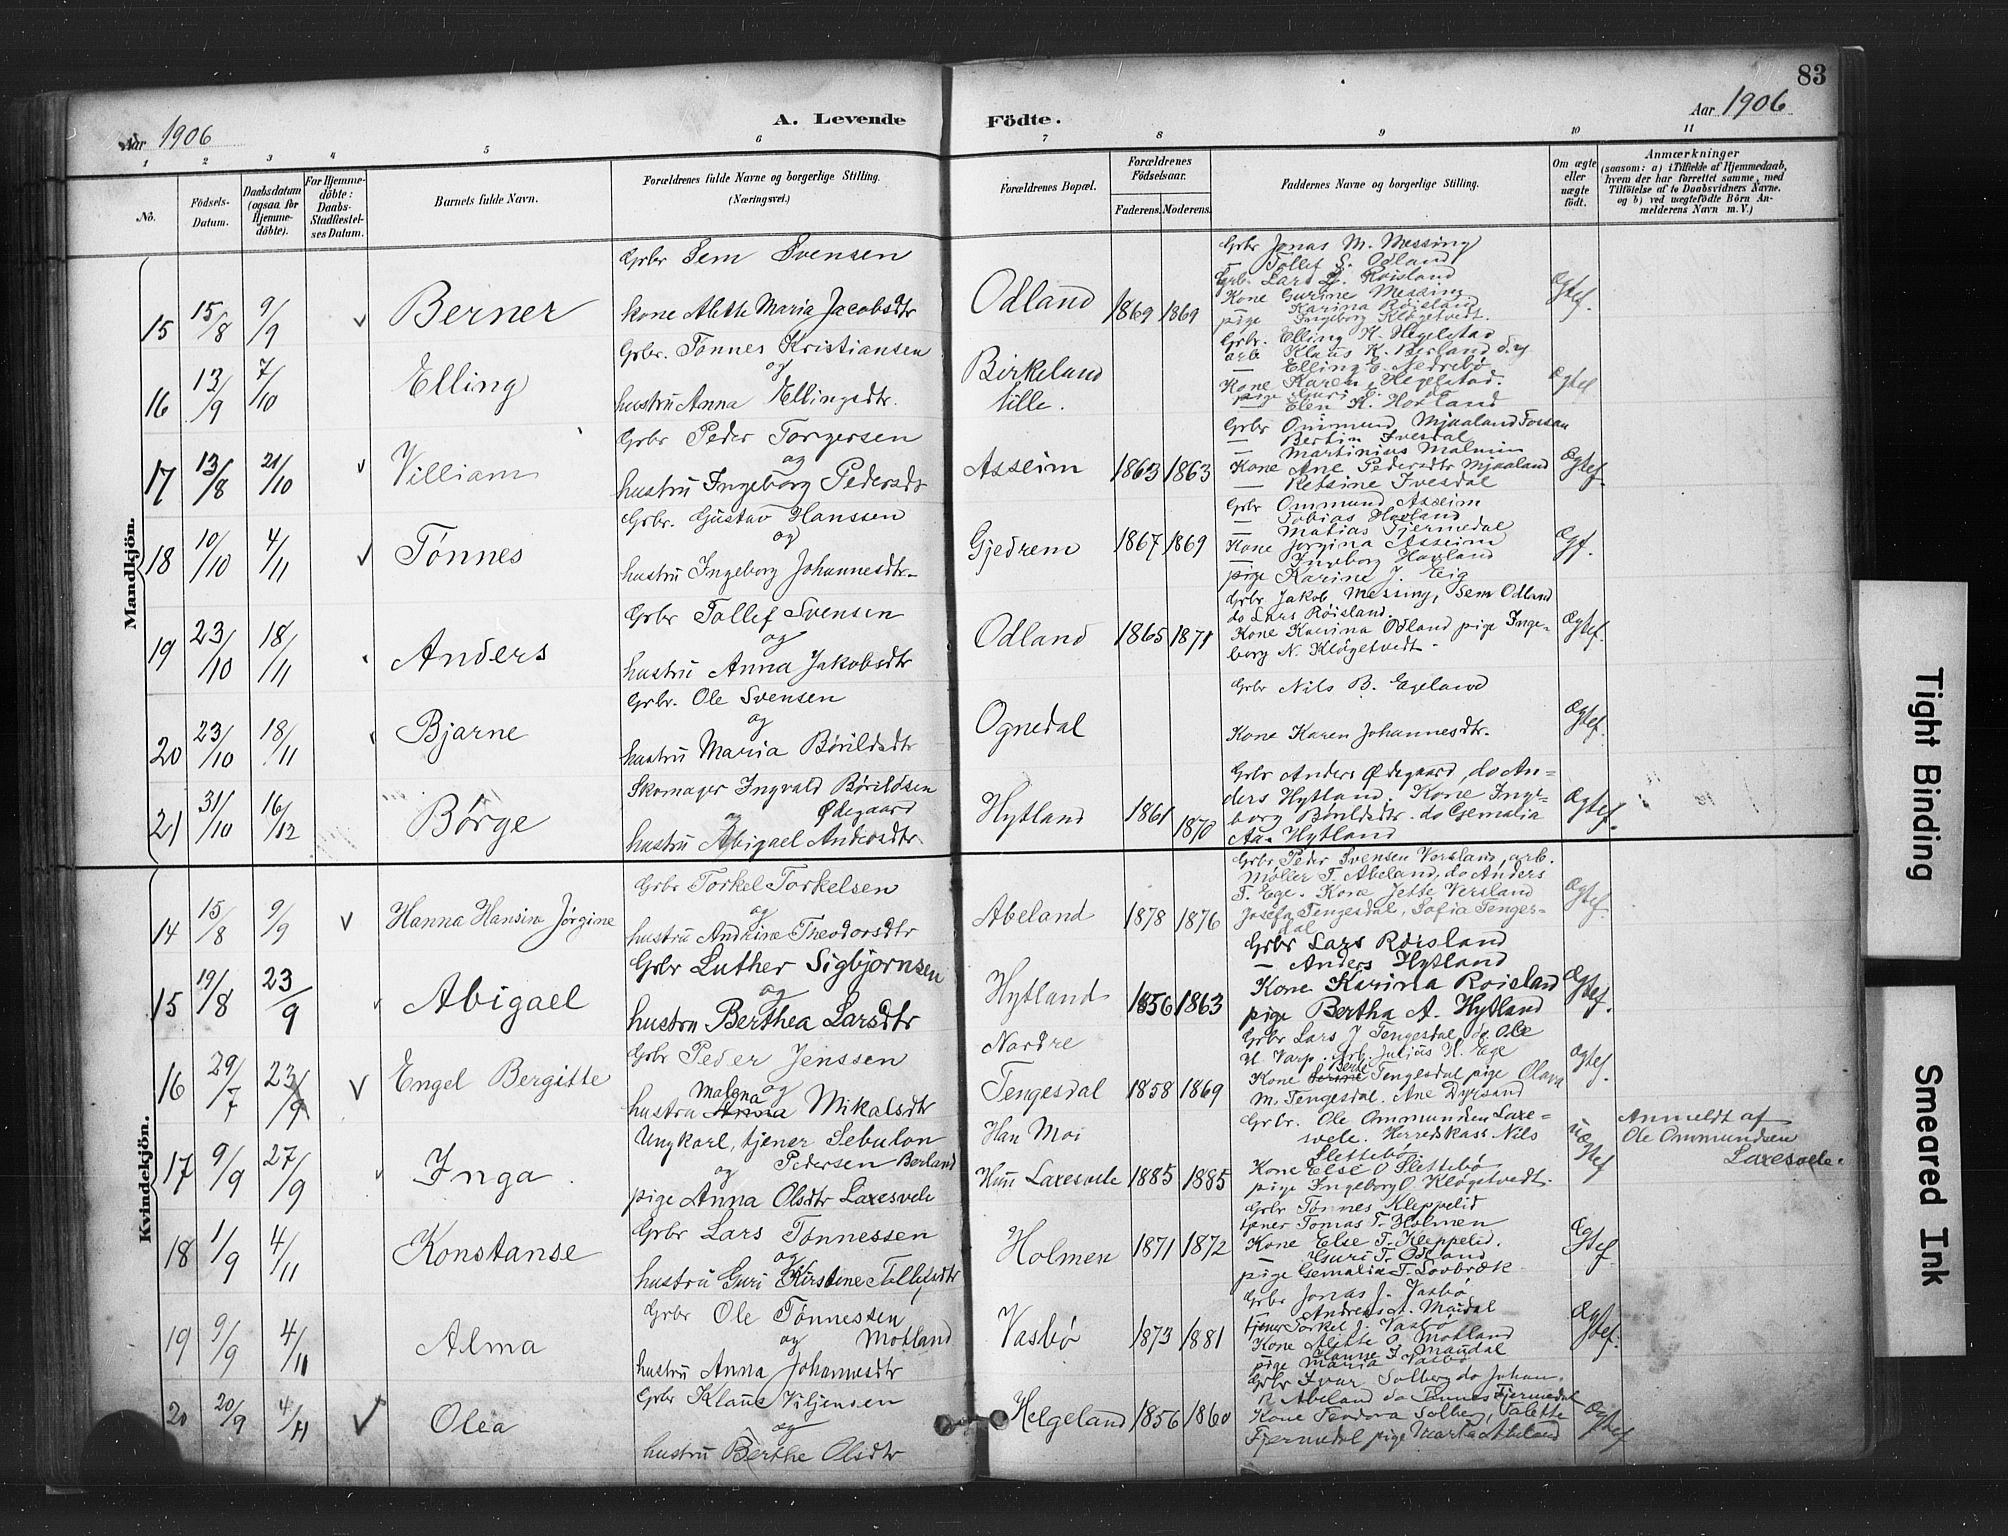 83
Aar 1906
A. Levende
Födte.
Aar 1906
1 2 3 4 5 6 7 8 9 10 11
No.
Födsels-
Datum.
Daabsdatum
(ogsaa for
Hjemme-
döbte).
For Hjemme-
döbte:
Daabs-
Stadfæstel-
ses Datum.
Barnets fulde Navn.
Forældrenes fulde Navne og borgerlige Stilling.
(Næringsvei.)
Forældrenes Bopæl.
Forældrenes
Födselsaar.
Faderens. Moderens.
Faddernes Navne og borgerlige Stilling.
Om ægte
eller
uægte
født.
Anmærkninger
(saasom: a) i Tilfælde af Hjemmedaab,
hvem der har forrettet samme, med
Tilföielse af to Daabsvidners Navne.
og b) ved uægtefödte Börn An-
melderens Navn m. V.)
Mandkjön.
15 15/8 9/9 Berner
Grbr Sem Svensen
kone Alette Maria Jacobsdtr
Odland 1869 1869
Grbr Jonas M. Messing
— Tollef S. Odland
Grb. Lars Røisland
Kone Gurine Messing
Karina Røisland
pige Ingeborg Kløgetvedt.
Ægtef.
16 13/9 7/10 Elling
Grbr. Tønnes Kristiansen
og
hustru Anna Ellingsdtr.
Birkeland
lille.
Grbr. Elling K. Hegelstad
arb Klaus K. Berland
— Elling E. Nedrebø
Kone Karen Hegelstad.
— Elen K. Hovland
Ægtef
17 13/8 21/10 William
Grbr Peder Torgersen
og
hustru Ingeborg Pedersdtr
Asseim 1863 1863
Grbr Ommund Mjaaland Fossan
— Bertin Ivesdal
— Martinius Malmin
Kone Ane Pedersdtr Mjaaland
— Retsine Ivesdal
Ægtef.
18 10/10 4/11 Tønnes
Grbr. Gustav Hanssen
og
hustru Ingeborg Johannesdtr.
Gjedrem 1867 1869
Grbr Ommund Asseim
— Tobias Hovland
— Matias Fjermedal
Kone Jorgina Asseim
— Ingborg Hovland
pige Karine J. Eig
Ægt.
19 23/10 18/11 Anders
Grbr Tollef Svensen
og
hustru Anna Jakobsdtr
Odland 1865 1871
Grbr Jakob Messing, Sem Odland
do Lars Røisland.
Kone Karina Odland pige Inge-
borg N. Kløgetvedt.
Ægtef.
20 23/10 18/11 Bjarne
Grbr. Ole Svensen
og
hustru Maria Børildsdtr
Ognedal
Grbr Nils B. Egeland
Kone Karen Johannesdtr.
Ægtef.
21 31/10 16/12 Børge
Skomager Ingvald Børildsen
og Ødegaard
hustru Abigael Andersdtr.
Hytland 1861 1870
Grbr Anders Ødegaard, do An-
ders Hytland. Kone Inge-
borg Børildsdtr. do Gemalia
Aa. Hytland
Ægtef.
Kvindekjön.
14 15/8 9/9 Hanna Hansine Jørgine
Grbr Torkel Torkelsen
og
hustru Andrine Theodorsdtr
Abeland 1878 1876
Grbr Peder Svensen Versland, arb.
Møller T. Abeland, do Anders
T. Ege. Kone Jette Versland
Josefa Tengesdal, Sofia Tenges-
dal
Ægtef.
15 19/8 23/9 Abigael
Grbr Luther Sigbjørnsen
og
hustru Berthea Larsdtr
Hytland 1856 1863
Grbr Lars Røisland
— Anders Hytland
Kone Karina Roisland
pige Bertha A. Hytland
Ægtef.
16 29/7 23/9 Engel Bergitte
Grbr Peder Jenssen
Malena og
hustru Anna Mikalsdtr
Nordre
Tengesdal 1858 1869
Grbr Lars J Tengesdal, do Ole
H Varp. Arb. Julius H. Ege
Berte
Kone Serine Tengesdal pige Olava
M. Tengesdal. Ane Dyrsand
Ægtef.
17 9/9 27/9 Inga
Ungkarl, tjener Sebulon
og Pedersen Berland
pige Anna Olsdtr Laxesvele
Han Moi
Hun Laxesvele 1885 1885
Grbr. Ole Ommundsen Laxe-
svele. Herredskass Nils
Slettebø.
Kone Else O Slettebø
pige Ingeborg O Kløgetvedt.
uægtef
Anmeldt af
Ole Ommundsen
Laxesvele.
18 1/9 4/11 Konstanse
Grbr Lars Tønnessen
og
hustru Guri Kirstine Tollefsdtr
Holmen 1871 1872
Grbr Tønnes Kleppelid
tjener Tomas T. Holmen
Kone Else T. Kleppelid.
Guri T. Odland
pige Gemalia T. Lovbræk
Ægtef.
19 9/9 4/11 Alma
Grbr Ole Tønnessen
og Motland
hustru Anna Johannesdtr
Vasbø 1873 1881
Grbr Jonas J. Vasbø
Andreas A. Maudal
tjener Torkel J. Vasbø
Kone Alette O. Motland
Hanne J. Maudal
pige Maria Vasbø
Ægtef.
20 20/9 4/11 Olea
Grbr Klaus Viljensen
og
hustru Berthe Olsdtr
Helgeland 1856 1860
Grbr Ivar Solberg do Johan.
R Abeland do Tønnes Fjermedal
Kone Teodora Solberg, Valette
Fjermedal pige Marta Abeland
Ægtef.
Tight Binding
Smeared Ink